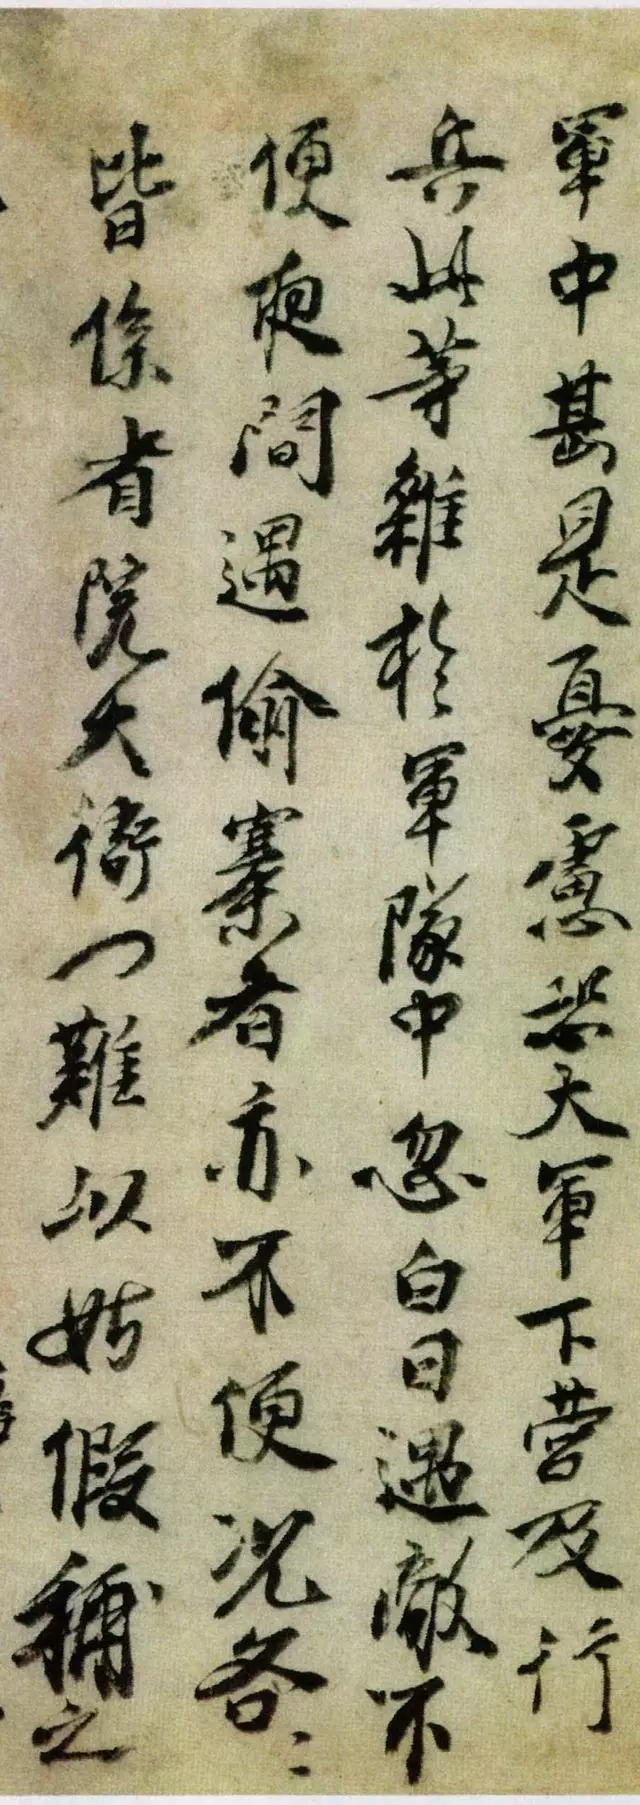 軍中甚是憂慮恐大軍下營及行
兵此等雜於軍隊中忽白日遇敵不
便夜間遇偷寨者亦不便況各〻
皆係省院大衙門難以姑假稱之